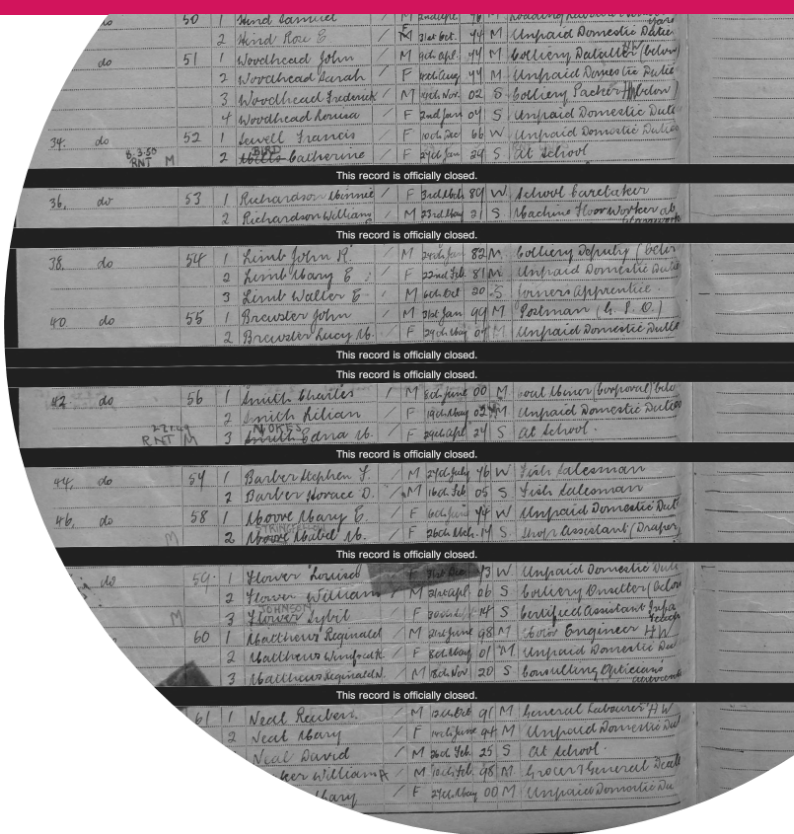 50 1 Hind Samuel / M
2 Hind Rose E / F 31st Oct. 74 M Unpaid Domestic Duties
do 51 1 Woodhead John / M 9th Apl. 74 M Colliery Dataller HW (below)
2 Woodhead Sarah / F Aug 77 M Unpaid Domestic Dutie
3 Woodhead Frederick / M Nov. 02 S Colliery Packer HW (below)
4 Woodhead Louisa / F 2nd Jan 04 S Unpaid Domestic Dutie
34. do 52 1 Sewell Francis / F 10th Dec 66 W Unpaid Domestic Dutie
8.3.50 RNT M BIRD
2 Catherine / F 27th Jan 29 S At School
This record is officially closed.
36. do 53 1 Richardson Minnie / F 3rd Mch 89 W School Caretaker
2 Richardson William / M 23rd May 21 S Machine Floor Worker at
This record is officially closed.
38. do 54 1 Limb John R. / M Jan 82 M Colliery Deputy (below
2 Limb Mary E / F 22nd Feb. 81 M Unpaid Domestic Dutie
3 Limb Walter E / M 6th Oct 20 S Joiners Apprentice.
40 do 55 1 Brewster John / M 31st Jan 99 M Postman (G. P. O.)
2 Brewster Lucy M. / F 29th May 04 M Unpaid Domestic Dutie
This record is officially closed.
This record is officially closed.
42 do 56 1 Smith Charles / M June 00 M Coal Miner (Corporal) below
2 Smith Lilian / F 19th May 02 M Unpaid Domestic Duties
RNT M NOKES
3 Smith Edna M. / F 29th Apl 24 S At School.
This record is officially closed.
44, do 57 1 Barber Stephen F. / M 27th July 76 W Fish Salesman
2 Barber Horace D. / M 16th Feb 05 S Fish Salesman
46, do 58 1 Moore Mary E. / F June 74 W Unpaid Domestic Duti
M
2 Moore Mabel M. / F 26th Mch. 17 S. Shop Assistant (Draper,
This record is officially closed.
do 59. 1 Flower Louisa F 31st Dec 73 W Unpaid Domestic Duti
2 Flower William / M 21st Apl 06 S Colliery Onsetter (below
M JOHNSON
3 Flower Sybil / F 14 S Certified Assistant Infa
60 1 Matthews Reginald / M June 98 M Engineer HW
2 Matthews Winifred / F 8th May 01 M. Unpaid Domestic Dut
3 Matthews Reginald / M 18th Nov 20 S Consulting Opticians
This record is officially closed.
61 1 Neal Reuben. / M 12th Oct 91 M General Labourer HW
2 Neal Mary / F June 94 M Unpaid Domestic Dut
Neal David / M Feb. 25 S At School.
William / M 10th Feb. 98 M Grocer & General Deal
Mary / F 27th May 00 M Unpaid Domestic Du